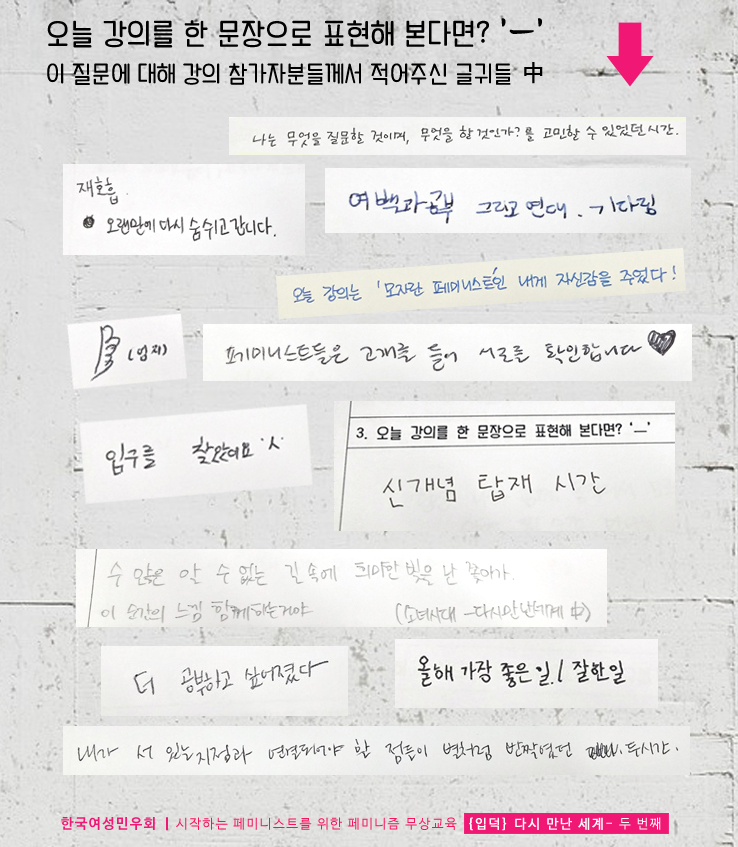 오늘 강의를 한 문장으로 표현해 본다면? 'ㅡ'
이 질문에 대해 강의 참가자분들께서 적어주신 글귀들 中
나는 무엇을 질문할 것이며, 무엇을 할 것인가?를 고민할 수 있었던 시간.
재호흡.
● 오랜만에 다시 숨쉬고 갑니다.
여백과 공부 그리고 연대. 기다림
오늘 강의는 '모자란 페미니스트'인 내게 자신감을 주었다!
(엄지)
페미니스트들은 고개를 들어 서로를 확인합니다 ♥
입구를 찾았어요 'ㅅ'
3. 오늘 강의를 한 문장으로 표현해 본다면? 'ㅡ'
신개념 탑재 시간
수 많은 알 수 없는 길 속에 희미한 빛을 난 쫓아가.
이 순간의 느낌 함께 하는거야
(소녀시대 - 다시만난세계 中)
더 공부하고 싶어졌다
올해 가장 좋은일! / 잘한일
내가 서 있는 지점과 연결되어야 할 점들이 별처럼 반짝였던 두시간.
한국여성민우회 | 시작하는 페미니스트를 위한 페미니즘 무상교육 {입덕} 다시 만난 세계- 두 번째